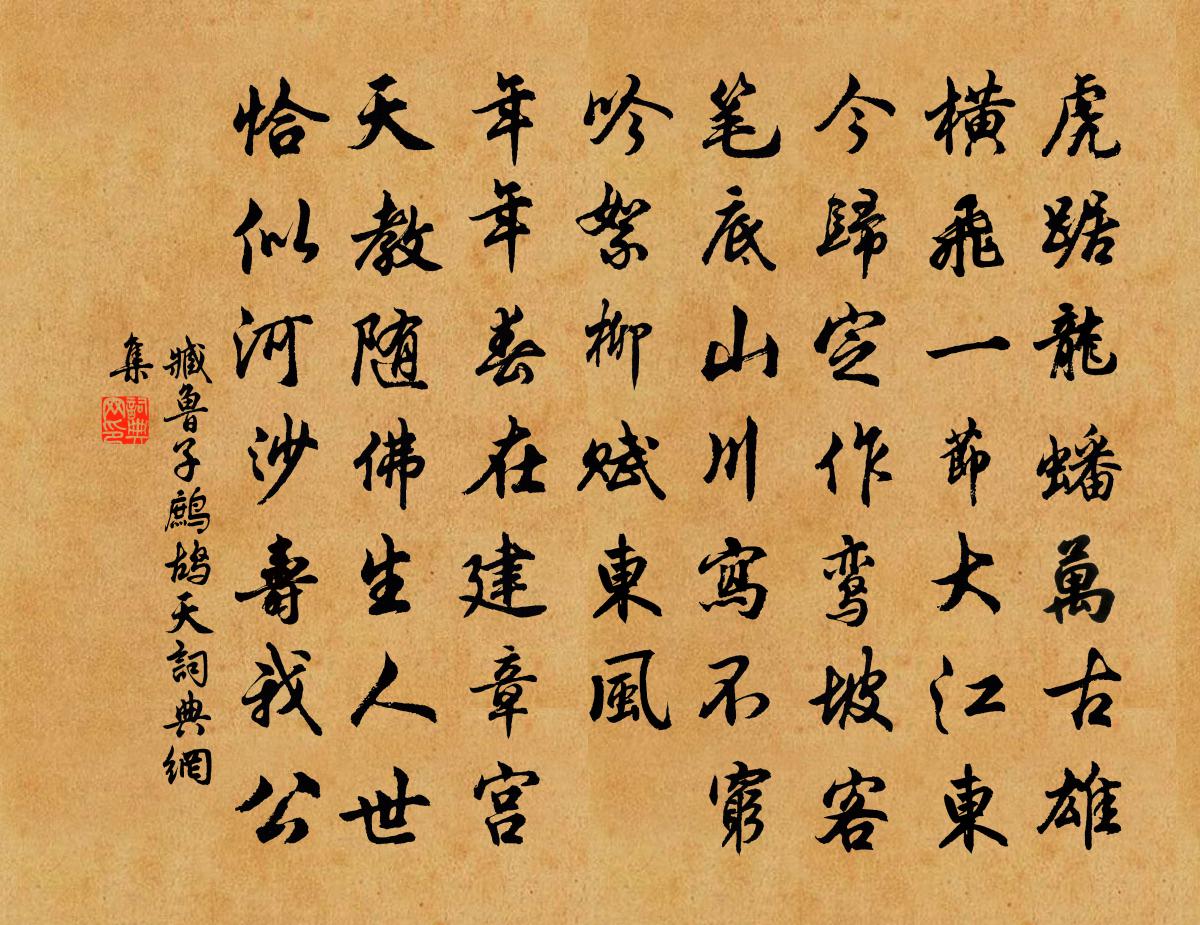 虎踞龍蟠萬古雄
橫飛一節大江東
今歸定作鸾坡客
笔底山川寫不窮
吟絮柳賦東風
年年春在建章宫
天教随佛生人世
恰似河沙壽我公
臧魯子鷓鴣天詞典網
集
詞典
网印